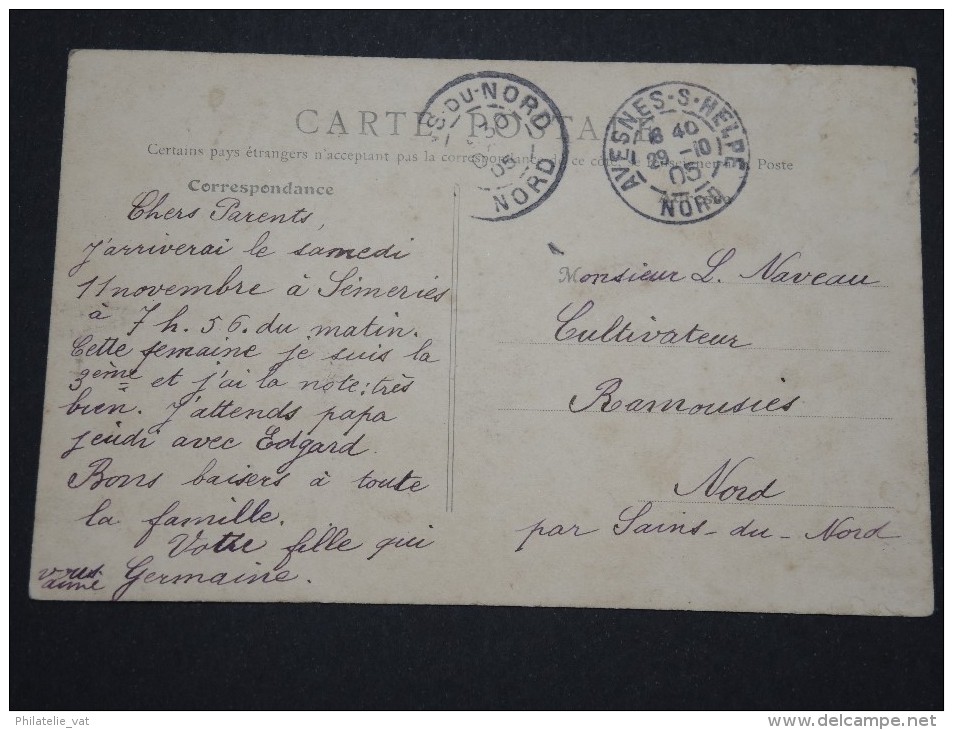 CARTE POSTALE
Certains pays étrangers n'acceptant pas la correspondance ce côté Poste
Correspondance
Chers Parents,
J'arriverai le samedi
11 novembre à Sémeries
à 7 h. 56. du matin.
Cette semaine je suis la
3ème et j'ai la note: très
bien. J'attends papa
jeudi avec Edgard.
Bons baisers à toute
la famille.
Votre fille qui
vous aime
Germaine.
S-DU-NORD
30
05
NORD
AVESNES-S-HELPE
18 40
29 -10
05
NORD
1
Monsieur L. Naveau
Cultivateur
Ramousies
Nord
par Sains-du-Nord
Philatelie_vat
www.delcampe.net